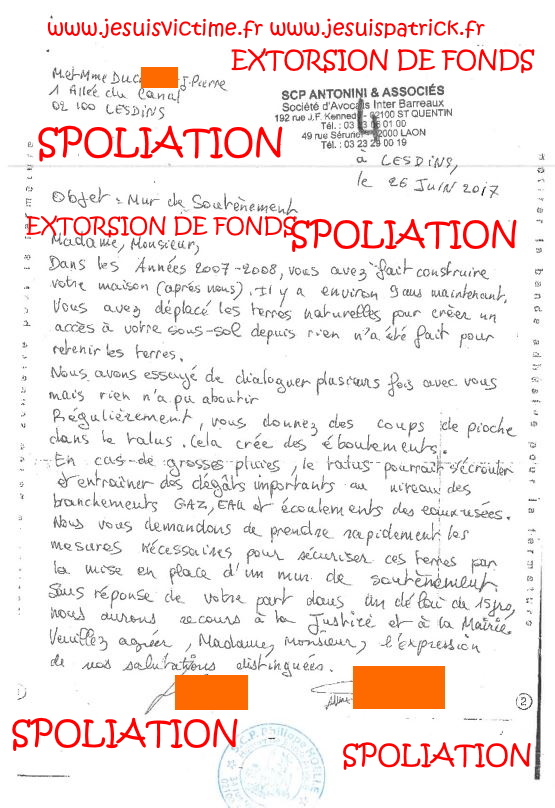 www.jesuisvictime.fr www.jesuispatrick.fr
EXTORSION DE FONDS
M. et Mme DUC J. Pierre
1 Allée du Canal
02 100 LESDINS
SCP ANTONINI & ASSOCIÉS
Société d'Avocats Inter Barreaux
192 rue J.F. Kennedy 02100 ST QUENTIN
Tél. : 03 23 06 01 00
49 rue Sérurier 02000 LAON
Tél. : 03 23 29 00 19
4
SPOLIATION
à LESDINS,
le 26 JUIN 2017
Objet : Mur de Soutènement
EXTORSION DE FONDS
SPOLIATION
Madame, Monsieur,
Dans les Années 2007-2008, vous avez fait construire
votre maison (après nous). Il y a environ 9 ans maintenant.
Vous avez déplacé les terres naturelles pour créer un
accès à votre sous-sol depuis rien n'a été fait pour
retenir les terres.
Nous avons essayé de dialoguer plusieurs fois avec vous
mais rien n'a pu aboutir
Régulièrement, vous donnez des coups de pioche
dans le talus. Cela crée des éboulements.
En cas de grosses pluies, le talus pourrait s'écrouler
et entraîner des dégâts importants au niveau des
branchements GAZ, EAU et écoulements des eaux usées.
Nous vous demandons de prendre rapidement les
mesures nécessaires pour sécuriser ces terres par
la mise en place d'un mur de soutènement.
Sans réponse de votre part dans un délai de 15 jrs,
nous aurons recours à la Justice et à la Mairie.
Veuillez agréer, Madame, Monsieur, l'expression
de nos salutations distinguées.
2
SPOLIATION
SPOLIATION